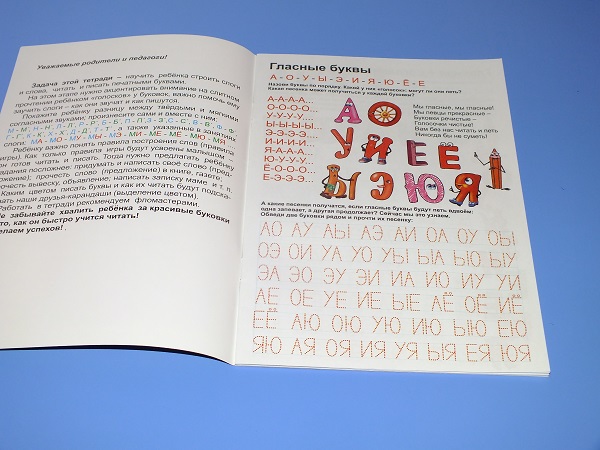 Уважаемые родители и педагоги!
Задача этой тетради – научить ребёнка строить слоги
и слова, читать и писать печатными буквами.
На этом этапе нужно акцентировать внимание на слитном
прочтении ребёнком «голосков» у буковок, важно помочь ему
звучить слоги – как они звучат и как пишутся.
Покажите ребёнку разницу между твёрдыми и мягкими
согласными звуками; произнесите сами и вместе с ним:
а также указанные в заданиях
слоги: МА - МО - МУ - МЫ - МЭ - МИ - МЕ - МЮ - МЯ - МЁ.
Ребёнку важно понять правила построения слов (правила
игры). Как только правила игры будут усвоены малышом –
он готов читать и писать. Тогда нужно предлагать ребёнку
задания посложнее: придумать и написать своё слово (пред-
ложение); прочесть слово (предложение) в книге, газете,
прочесть вывеску, объявление; написать записку маме и т. п.
Каким цветом писать буквы и как их читать будут подска-
зывать наши друзья-карандаши (выделение цветом).
Работать в тетради рекомендуем фломастерами.
Не забывайте хвалить ребёнка за красивые буковки
то, как он быстро учится читать!
Желаем успехов!
Гласные буквы
А - О - У - Ы - Э - И - Я - Ю - Ё - Е
Назови буквы по порядку. Какой у них «голосок»: могут ли они петь?
Какая песенка может получиться у каждой буковки?
А-А-А-А...
О-О-О-О...
У-У-У-У...
Ы-Ы-Ы-Ы...
Э-Э-Э-Э...
И-И-И-И...
Я-А-А-А...
Ю-У-У-У...
Ё-О-О-О...
Е-Э-Э-Э...
А О
У И Е Ё
Ы Э Ю Я
Мы гласные, мы гласные!
Мы певцы прекрасные –
Буковки речистые –
Голосочки чистые!
Вам без нас читать и петь
Никогда бы не суметь!
А какие песенки получатся, если гласные буквы будут петь вдвоём:
одна запевает, а другая продолжает? Сейчас мы это узнаем.
Обведи две буковки рядом и прочти их песенку:
АО АУ АЫ АЭ АИ ОА ОУ ОЫ
ОЭ ОИ УА УО УЫ ЫА ЫО ЫУ
ЭА ЭО ЭУ ЭИ ИА ИО ИУ УИ
АЕ ОЕ УЕ ИЕ ЫЕ АЁ ОЁ ИЁ
ЕЁ АЮ ОЮ УЮ ИЮ ЫЮ ЕЮ
ЯЮ АЯ ОЯ ИЯ УЯ ЫЯ ЕЯ ЮЯ